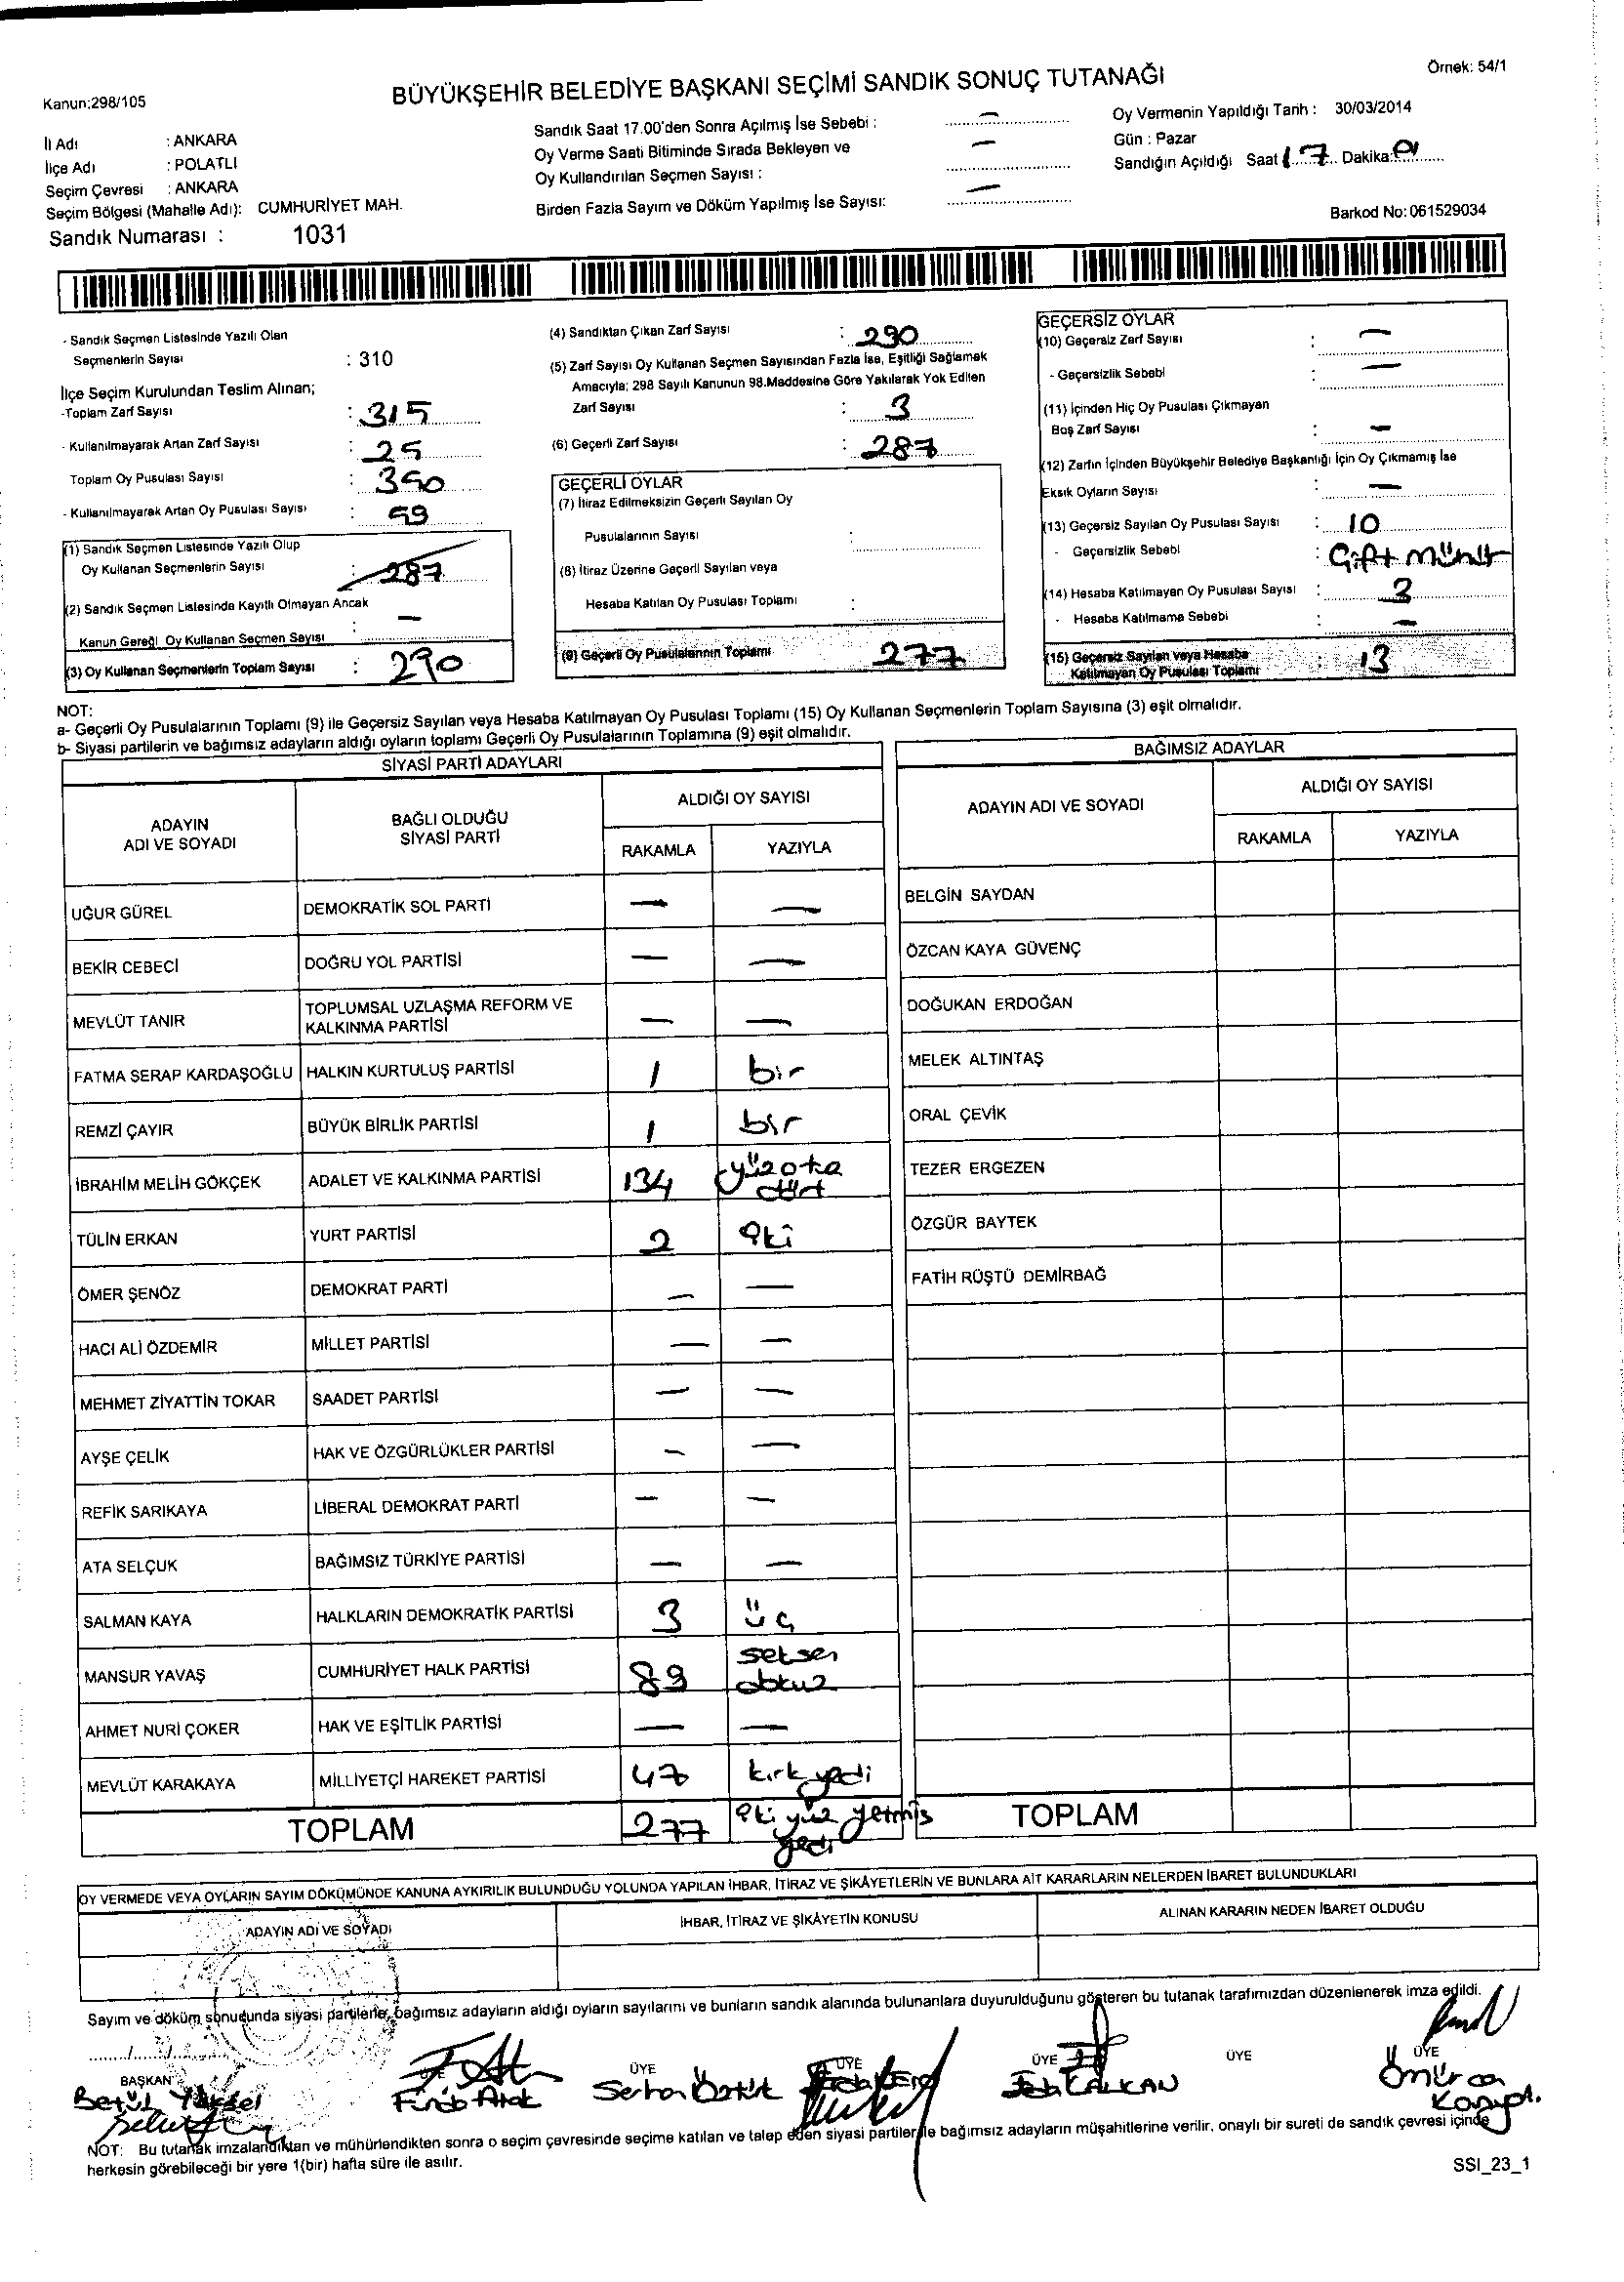 Örnek: 54/1
BÜYÜKŞEHİR BELEDİYE BAŞKANI SEÇİMİ SANDIK SONUÇ TUTANAĞI
Kanun:298/105
İl Adı : ANKARA
İlçe Adı : POLATLI
Seçim Çevresi : ANKARA
Seçim Bölgesi (Mahalle Adı): CUMHURİYET MAH.
Sandık Numarası : 1031
Sandık Saat 17.00'den Sonra Açılmış İse Sebebi : —
Oy Verme Saati Bitiminde Sırada Bekleyen ve —
Oy Kullandırılan Seçmen Sayısı :
Birden Fazla Sayım ve Döküm Yapılmış İse Sayısı: —
Oy Vermenin Yapıldığı Tarih : 30/03/2014
Gün : Pazar
Sandığın Açıldığı Saat 17 Dakika
Barkod No:061529034
- Sandık Seçmen Listesinde Yazılı Olan
Seçmenlerin Sayısı : 310
İlçe Seçim Kurulundan Teslim Alınan;
-Toplam Zarf Sayısı : 315
- Kullanılmayarak Artan Zarf Sayısı : 25
Toplam Oy Pusulası Sayısı : 350
- Kullanılmayarak Artan Oy Pusulası Sayısı : 59
(1) Sandık Seçmen Listesinde Yazılı Olup
Oy Kullanan Seçmenlerin Sayısı : 287
(2) Sandık Seçmen Listesinde Kayıtlı Olmayan Ancak
Kanun Gereği Oy Kullanan Seçmen Sayısı : —
(3) Oy Kullanan Seçmenlerin Toplam Sayısı : 290
(4) Sandıktan Çıkan Zarf Sayısı : 290
(5) Zarf Sayısı Oy Kullanan Seçmen Sayısından Fazla İse, Eşitliği Sağlamak
Amacıyla; 298 Sayılı Kanunun 98.Maddesine Göre Yakılarak Yok Edilen
Zarf Sayısı : 3
(6) Geçerli Zarf Sayısı : 287
GEÇERLİ OYLAR
(7) İtiraz Edilmeksizin Geçerli Sayılan Oy
Pusulalarının Sayısı :
(8) İtiraz Üzerine Geçerli Sayılan veya
Hesaba Katılan Oy Pusulası Toplamı :
(9) Geçerli Oy Pusulalarının Toplamı 277
GEÇERSİZ OYLAR
(10) Geçersiz Zarf Sayısı : —
- Geçersizlik Sebebi : —
(11) İçinden Hiç Oy Pusulası Çıkmayan
Boş Zarf Sayısı : —
(12) Zarfın İçinden Büyükşehir Belediye Başkanlığı İçin Oy Çıkmamış İse
Eksik Oyların Sayısı : —
(13) Geçersiz Sayılan Oy Pusulası Sayısı : 10
- Geçersizlik Sebebi : Çift mühür
(14) Hesaba Katılmayan Oy Pusulası Sayısı : 3
- Hesaba Katılmama Sebebi : —
(15) Geçersiz Sayılan veya Hesaba
Katılmayan Oy Pusulası Toplamı : 13
NOT:
a- Geçerli Oy Pusulalarının Toplamı (9) ile Geçersiz Sayılan veya Hesaba Katılmayan Oy Pusulası Toplamı (15) Oy Kullanan Seçmenlerin Toplam Sayısına (3) eşit olmalıdır.
b- Siyasi partilerin ve bağımsız adayların aldığı oyların toplamı Geçerli Oy Pusulalarının Toplamına (9) eşit olmalıdır.
SİYASİ PARTİ ADAYLARI
ADAYIN ADI VE SOYADI BAĞLI OLDUĞU SİYASİ PARTİ ALDIĞI OY SAYISI
RAKAMLA YAZIYLA
UĞUR GÜREL DEMOKRATİK SOL PARTİ — —
BEKİR CEBECİ DOĞRU YOL PARTİSİ — —
MEVLÜT TANIR TOPLUMSAL UZLAŞMA REFORM VE KALKINMA PARTİSİ — —
FATMA SERAP KARDAŞOĞLU HALKIN KURTULUŞ PARTİSİ 1 bir
REMZİ ÇAYIR BÜYÜK BİRLİK PARTİSİ 1 bir
İBRAHİM MELİH GÖKÇEK ADALET VE KALKINMA PARTİSİ 134 yüzotz dört
TÜLİN ERKAN YURT PARTİSİ 2 iki
ÖMER ŞENÖZ DEMOKRAT PARTİ — —
HACI ALİ ÖZDEMİR MİLLET PARTİSİ — —
MEHMET ZİYATTİN TOKAR SAADET PARTİSİ — —
AYŞE ÇELİK HAK VE ÖZGÜRLÜKLER PARTİSİ — —
REFİK SARIKAYA LİBERAL DEMOKRAT PARTİ — —
ATA SELÇUK BAĞIMSIZ TÜRKİYE PARTİSİ — —
SALMAN KAYA HALKLARIN DEMOKRATİK PARTİSİ 3 üç
MANSUR YAVAŞ CUMHURİYET HALK PARTİSİ 89 seksen dokuz
AHMET NURİ ÇOKER HAK VE EŞİTLİK PARTİSİ — —
MEVLÜT KARAKAYA MİLLİYETÇİ HAREKET PARTİSİ 47 kırk yedi
TOPLAM 277 iki yüz yetmiş yedi
BAĞIMSIZ ADAYLAR
ADAYIN ADI VE SOYADI ALDIĞI OY SAYISI
RAKAMLA YAZIYLA
BELGİN SAYDAN
ÖZCAN KAYA GÜVENÇ
DOĞUKAN ERDOĞAN
MELEK ALTINTAŞ
ORAL ÇEVİK
TEZER ERGEZEN
ÖZGÜR BAYTEK
FATİH RÜŞTÜ DEMİRBAĞ
TOPLAM
OY VERMEDE VEYA OYLARIN SAYIM DÖKÜMÜNDE KANUNA AYKIRILIK BULUNDUĞU YOLUNDA YAPILAN İHBAR, İTİRAZ VE ŞİKÂYETLERİN VE BUNLARA AİT KARARLARIN NELERDEN İBARET BULUNDUKLARI
ADAYIN ADI VE SOYADI İHBAR, İTİRAZ VE ŞİKÂYETİN KONUSU ALINAN KARARIN NEDEN İBARET OLDUĞU
Sayım ve döküm sonucunda siyasi partilerle, bağımsız adayların aldığı oyların sayılarını ve bunların sandık alanında bulunanlara duyurulduğunu gösteren bu tutanak tarafımızdan düzenlenerek imza edildi.
BAŞKAN ÜYE ÜYE ÜYE ÜYE ÜYE
Serhan Öztürk KALKAN
NOT: Bu tutanak imzalandıktan ve mühürlendikten sonra o seçim çevresinde seçime katılan ve talep eden siyasi partiler ile bağımsız adayların müşahitlerine verilir, onaylı bir sureti de sandık çevresi içinde
herkesin görebileceği bir yere 1(bir) hafta süre ile asılır.
SSI_23_1